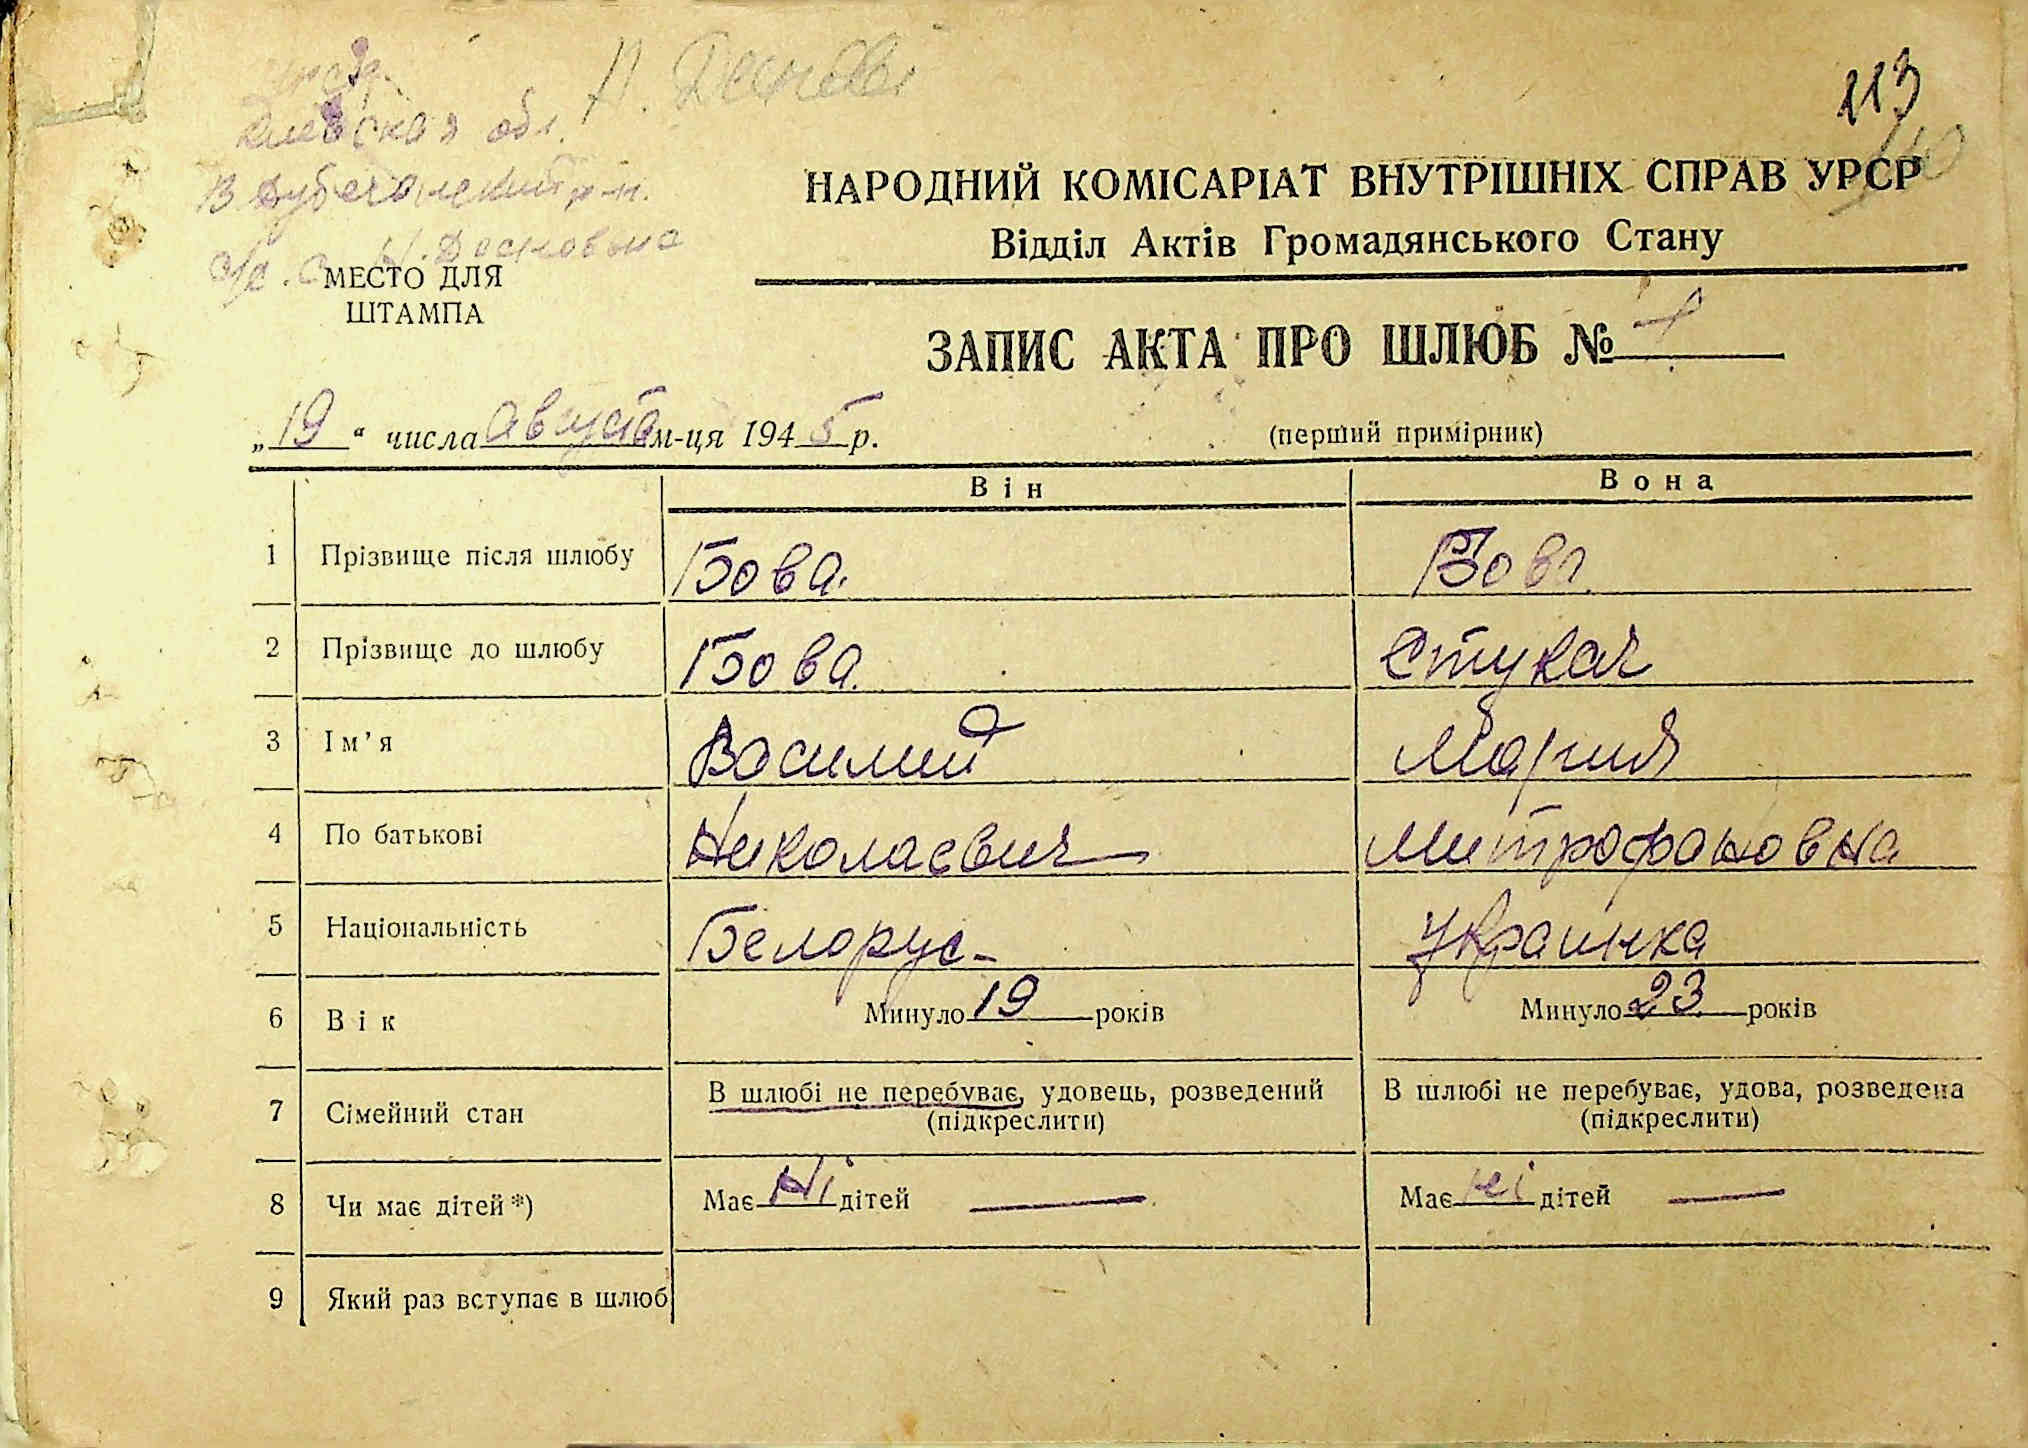 Н.
113
УССР
Киевская обл.
В Дубечанский р-н.
с/с. с. Н. Досновьна
МЕСТО ДЛЯ
ШТАМПА
НАРОДНИЙ КОМІСАРІАТ ВНУТРІШНІХ СПРАВ УРСР
Відділ Актів Громадянського Стану
ЗАПИС АКТА ПРО ШЛЮБ №
„19“ числа августа м-ця 1945 р.
(перший примірник)
Він Вона
1 Прізвище після шлюбу Бова. Бова.
2 Прізвище до шлюбу Бова. Стукач
3 Ім’я Василий Мария
4 По батькові Николаевич Митрофановна
5 Національність Белорус- Украинка
6 Вік Минуло 19 років Минуло 23 років
7 Сімейний стан В шлюбі не перебуває, удовець, розведений В шлюбі не перебуває, удова, розведена
(підкреслити) (підкреслити)
8 Чи має дітей*) Має Ні дітей — Має ні дітей —
9 Який раз вступає в шлюб